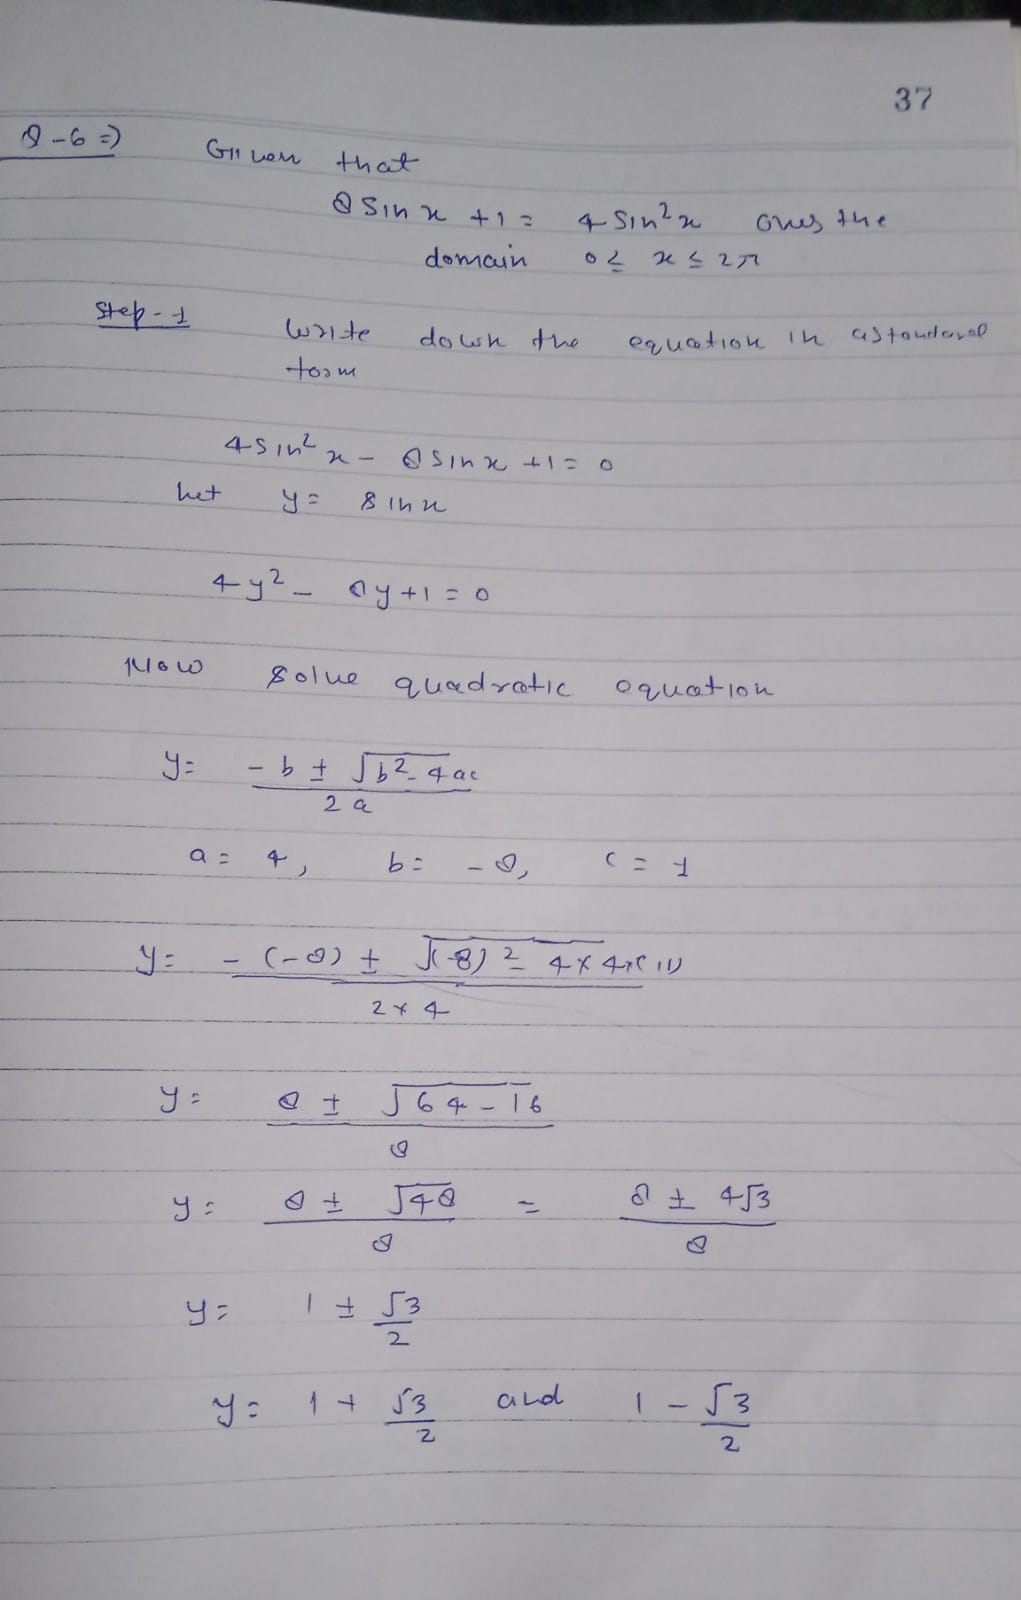 37
Q-6 ⇒ Given that
8 sin x + 1 = 4 sin² x over the
domain 0 ≤ x ≤ 2π
Step-1 Write down the equation in a standard
form
4 sin² x - 8 sin x + 1 = 0
Let y = sin x
4y² - 8y + 1 = 0
Now solve quadratic equation
y = (-b ± √(b² - 4ac)) / 2a
a = 4, b = -8, c = 1
y = (-(-8) ± √((-8)² - 4×4×(1))) / 2×4
y = (8 ± √(64 - 16)) / 8
y = (8 ± √48) / 8 = (8 ± 4√3) / 8
y = 1 ± √3/2
y = 1 + √3/2 and 1 - √3/2